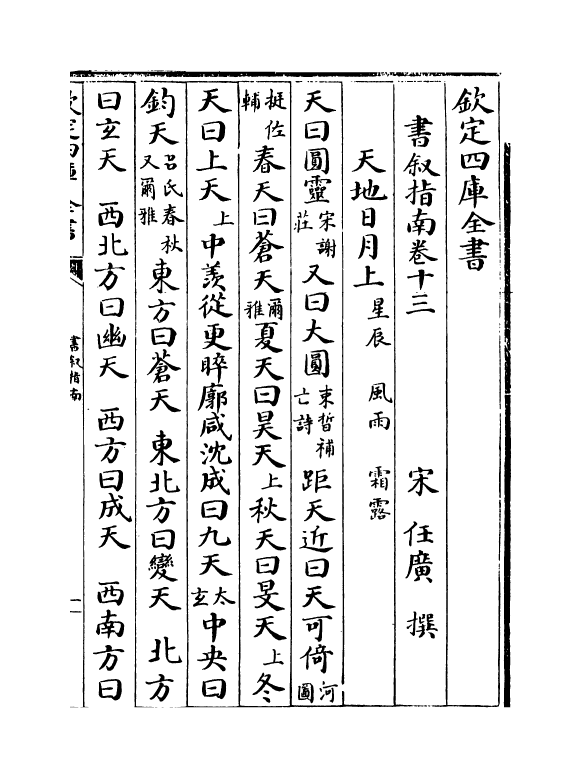 欽定四庫全書
書叙指南卷十三　宋　任廣　撰
天地日月上星辰　風雨　霜露
天曰圓靈宋謝莊又曰大圓束晳補亡詩距天近曰天可倚河圖
挺佐輔春天曰蒼天爾雅夏天曰昊天上秋天曰旻天上冬
天曰上天上中羨從更睟廓咸沈成曰九天太玄中央曰
鈞天呂氏春秋又爾雅東方曰蒼天　東北方曰變天　北方
曰玄天　西北方曰幽天　西方曰成天　西南方曰
欽定四庫全書
書叙指南
一